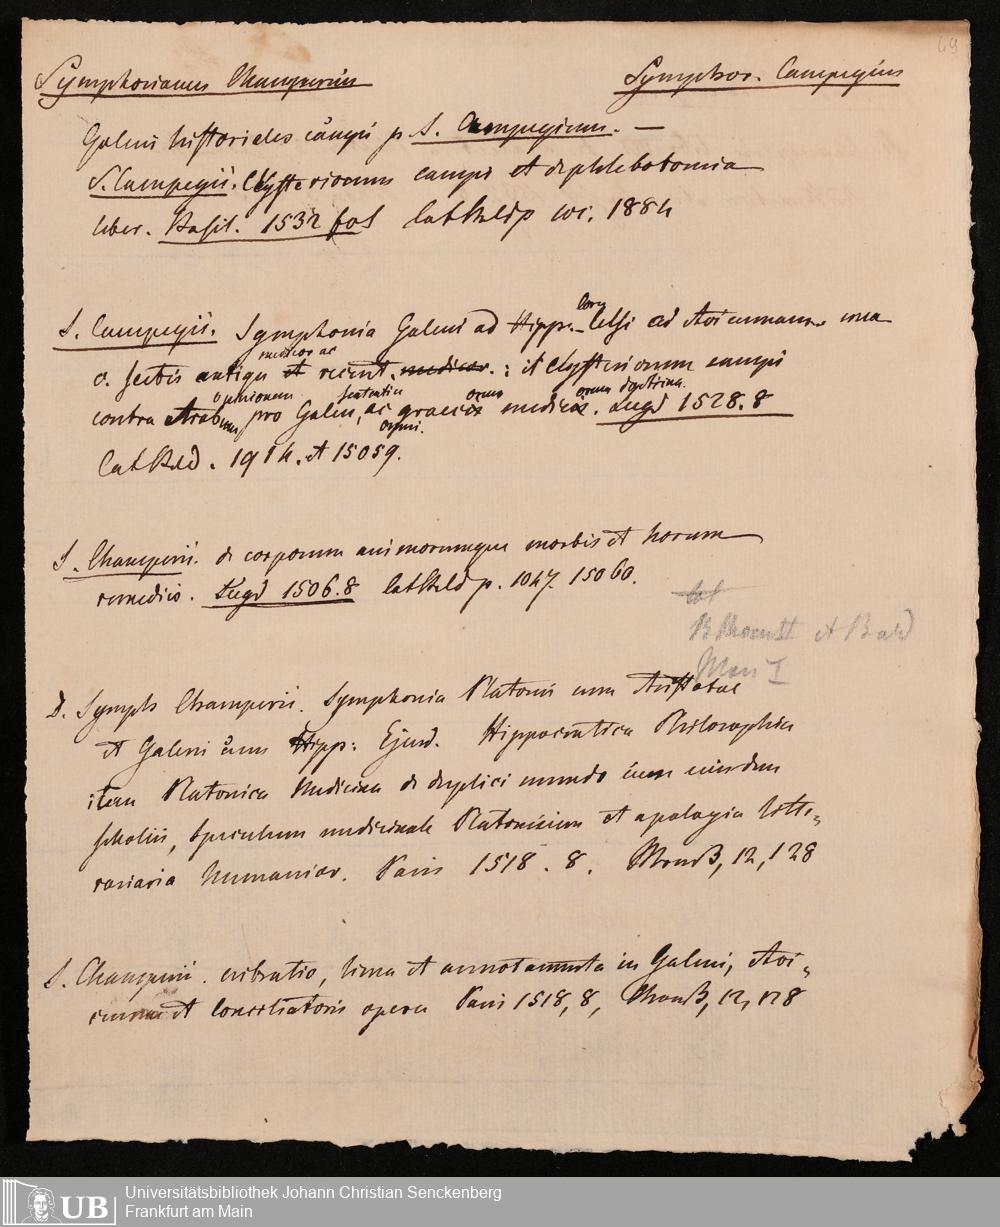 49
Symphorianus Champerius
Symphor. Campegius
Galeni historiales campi p. S. Campegium. —
S. Campegii. Clysteriorum campi et de phlebotomia
liber. Basil. 1532 fol Cat Bald p 1884
S. Campegii. Symphonia Galeni ad Hipp. Corn Celsi ad Avicennam. una
c. sectis antiqu medicor ac recent. medicor. : it Clysteriorum campi
contra Arabum opinionem pro Galen, sententia ac graecorum medicorum omni doctrina. Lugd 1528. 8
Cat Bald. 1914. et 15059.
S. Champerii. de corporum animorumque morbis et horum
remediis. Lugd 1506. 8 Cat Bald p. 1047. 15060.
et Bald
D. Symph Champerii. Symphonia Platonis cum Aristotele
et Galeni cum Hipp: Ejusd. Hippocratica Philosophia
item Platonica Medicina de duplici mundo cum eiusdem
scholiis, Speculum medicinale Platonicum et apologia litte-
raria humanior. Paris 1518. 8. 12, 128
S. Champerii. cribratio, lima et annotamenta in Galeni, Avi-
cennae et Conciliatoris opera Paris 1518, 8, 12, 128
UB
Universitätsbibliothek Johann Christian Senckenberg
Frankfurt am Main